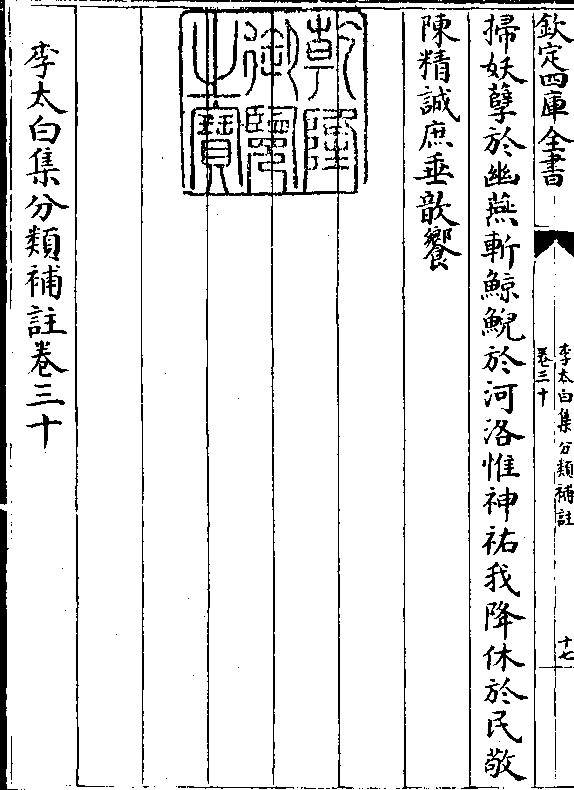 欽定四庫全書
李太白集分類補註
卷三十
十七
掃妖孽於幽燕斬鯨鯢於河洛惟神祐我降休於民敬
陳精誠庶垂歆饗
乾隆御覽之寶
李太白集分類補註卷三十